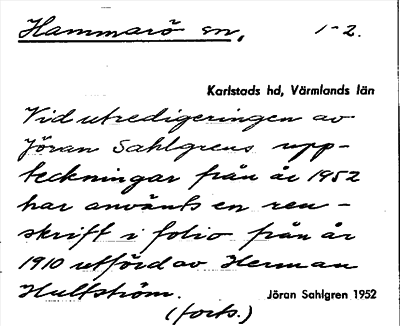 Hammarö sn, 1-2.
Karlstads hd, Värmlands län
Vid utredigeringen av
Jöran Sahlgrens upp-
teckningar från år 1952
har använts en ren-
skrift i folio från år
1910 utförd av Herman
Hultström.
Jöran Sahlgren 1952
(forts.)